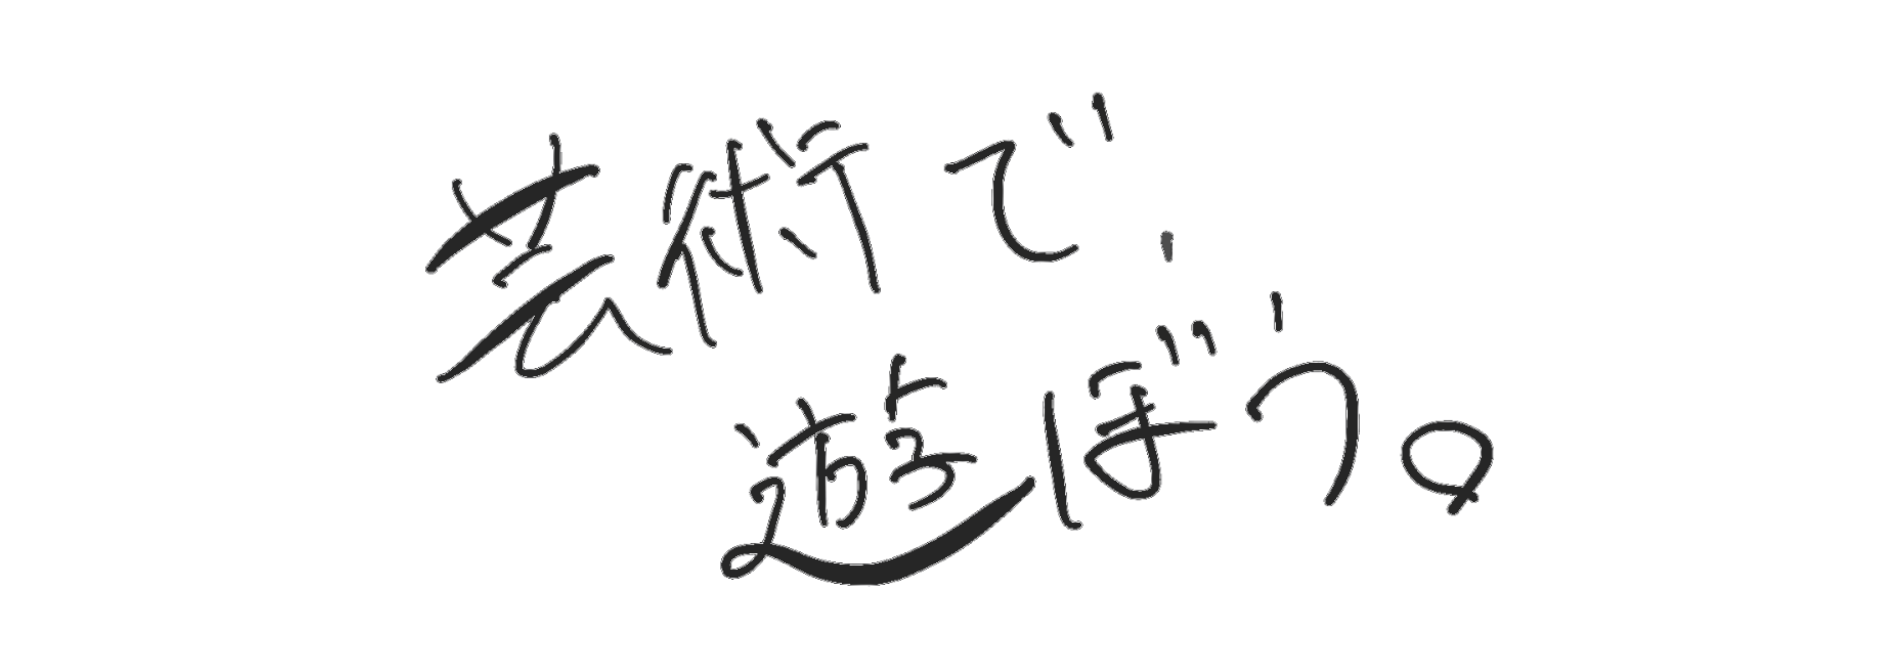 芸術で、
遊ぼう。